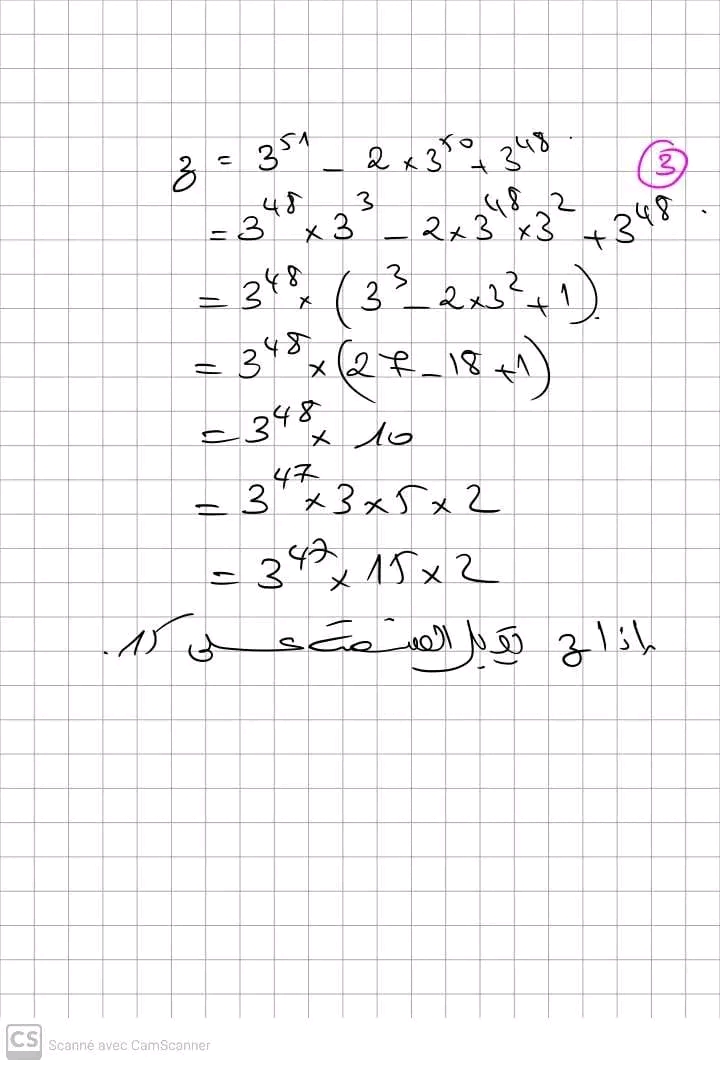 3
z = 3^51 - 2 × 3^50 + 3^48
= 3^48 × 3^3 - 2 × 3^48 × 3^2 + 3^48.
= 3^48 × (3^3 - 2 × 3^2 + 1).
= 3^48 × (27 - 18 + 1)
= 3^48 × 10
= 3^47 × 3 × 5 × 2
= 3^47 × 15 × 2
إذا z تقبل القسمة على 15.
CS Scanné avec CamScanner